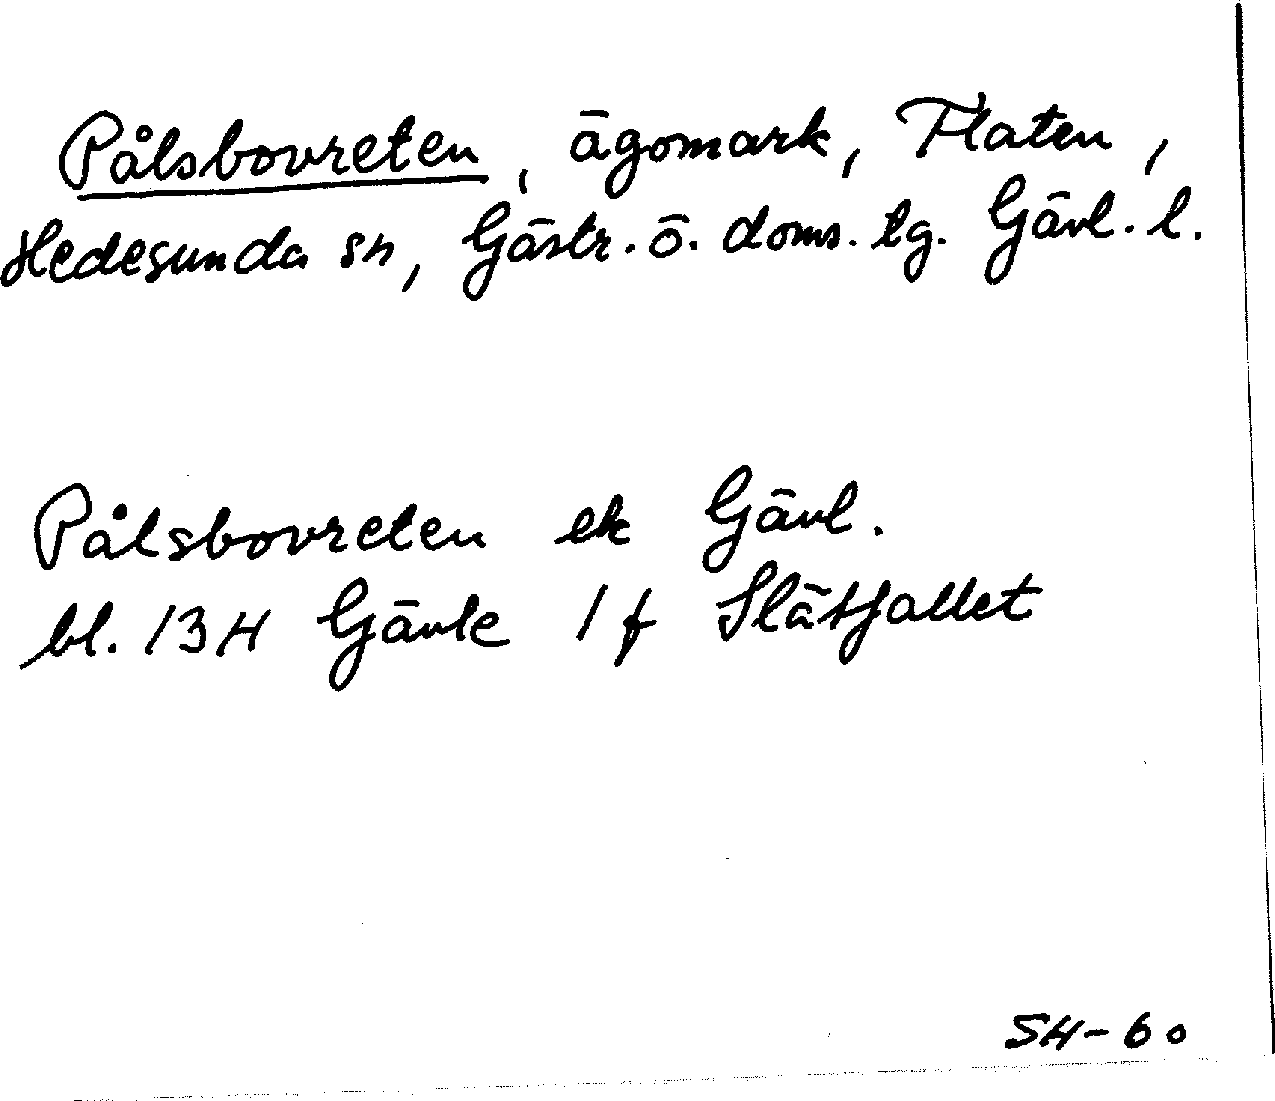 Pålsbovreten, ägomark, Flaten,
Hedesunda sn, Gästr. ö. doms. tg. Gävl. l.
Pålsbovreten ek Gävl.
bl. 13H Gävle 1 f Slätfallet
SH-60